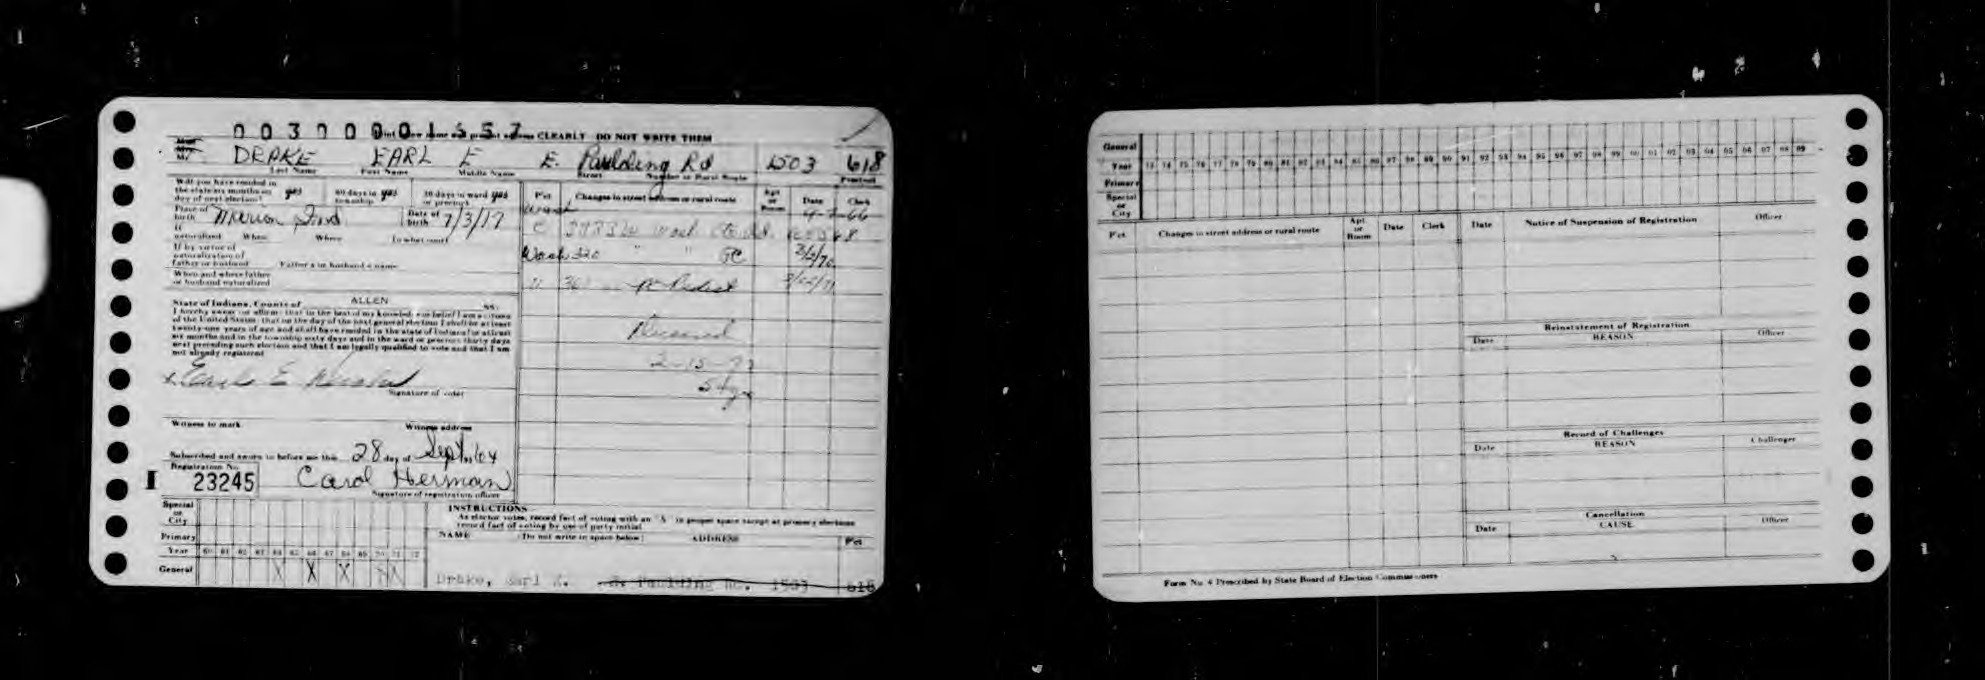 00300001557 name and present address CLEARLY DO NOT WRITE THEM
Mr. DRAKE EARL E E. Paulding Rd 1503 618
Last Name First Name Middle Name Street Number or Rural Route Precinct
Will you have resided in the state six months on day of next election? yes 60 days in township yes 30 days in ward or precinct yes
Pct Changes in street address or rural route Apt or Room Date Clerk
Place of birth Marion Ind Date of birth 7/3/17
If naturalized When Where In what court
If by virtue of naturalization of father or husband Father's or husband's name
When and where father or husband naturalized
Wash 320 " " GC 3/2/70
State of Indiana, County of ALLEN SS:
I hereby swear (or affirm) that to the best of my knowledge and belief I am a citizen
of the United States; that on the day of the next general election I shall be at least
twenty-one years of age and shall have resided in the state of Indiana for at least
six months and in the township sixty days and in the ward or precinct thirty days
next preceding such election and that I am legally qualified to vote and that I am
not already registered
Signature of voter
Witness to mark Witness address
Subscribed and sworn to before me this 28 day of Sept. 64
Registration No.
I 23245 Carol Herman
Signature of registration officer
INSTRUCTIONS
As elector votes, record fact of voting with an "X" in proper space except at primary elections
record fact of voting by use of party initial
NAME (Do not write in space below) ADDRESS Pct
Special or City
Primary
Year 60 61 62 63 64 65 66 67 68 69 70 71 72
General X X X X X
Drake, Earl E. E. Paulding Rd. 1503 618
General
Year 73 74 75 76 77 78 79 80 81 82 83 84 85 86 87 88 89 90 91 92 93 94 95 96 97 98 99 00 01 02 03 04 05 06 07 08 09
Primary
Special or City
Pct Changes in street address or rural route Apt or Room Date Clerk
Date Notice of Suspension of Registration Officer
Reinstatement of Registration
Date REASON Officer
Record of Challenges
Date REASON Challenger
Cancellation
Date CAUSE Officer
Form No. 4 Prescribed by State Board of Election Commissioners